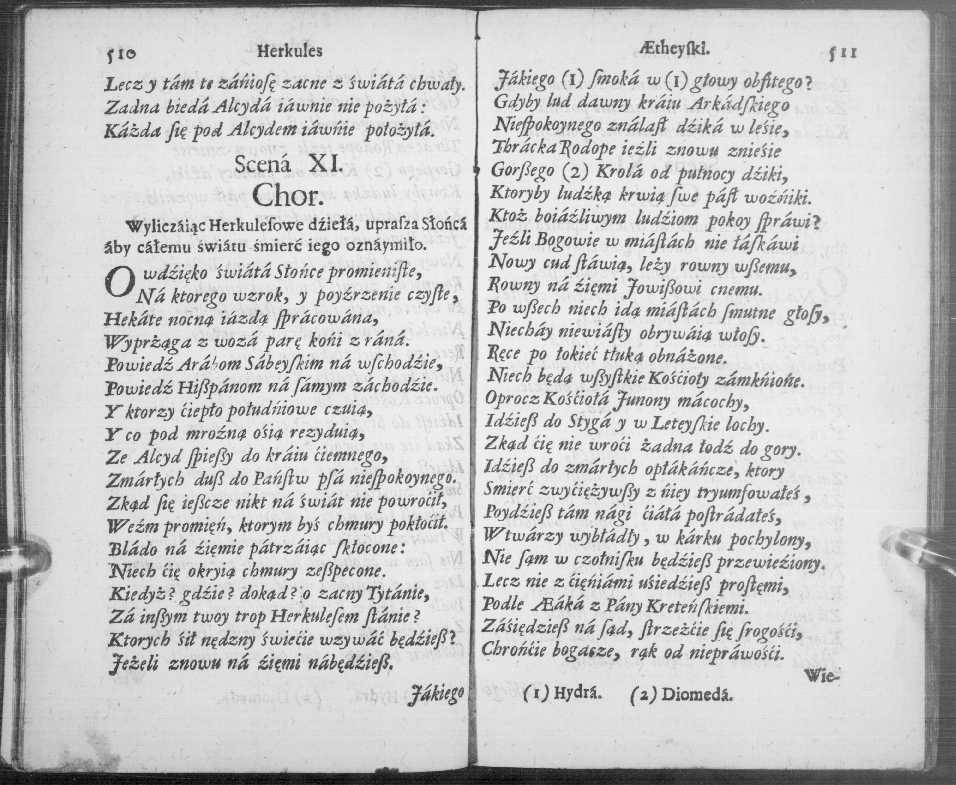 510 Herkules
Lecz y tám te záńioſę zacne z świátá chwały.
Zadna biedá Alcydá iáwnie nie pożytá:
Káżda ſię pod Alcydem iáwńie położytá.
Scená XI.
Chor.
Wyliczáiąc Herkuleſowe dźiełá, upraſza Słońcá
áby cáłemu świátu śmierć iego oznáymiło.
O wdźięko świátá Słońce promieniſte,
Ná ktorego wzrok, y poyźrzenie czyſte,
Hekáte nocną iázdą ſpráco­wána,
Wyprżąga z wozá parę końi z ráná.
Powiedź Arábom Sábeyſkim ná wſchodźie,
Powiedź Hißpánom ná ſámym záchodźie.
Y ktorzy ćiepło południowe czuią,
Y co pod mroźną ośią rezyduią,
Ze Alcyd ſpießy do kráiu ćiemnego,
Zmárłych duß do Páńſtw pſá nieſpokoynego.
Zkąd ſię ieſzcze nikt ná świát nie powroćił,
Weźm promień, ktorym byś chmury pokłoćił.
Bládo ná źięmie pátrzáiąc skłocone:
Niech ćię okryią chmury zeßpecone.
Kiedyż? gdźie? dokąd? o zacny Tytánie,
Zá inßym twoy trop Herkuleſem ſtánie?
Ktorych śił nędzny świećie wzywáć będźieß?
Jeżeli znowu ná źięmi nábędźieß.
Jákiego
Ætheyſki. 511
Jákiego (1) ſmoká w (1) głowy obfitego?
Gdyby lud dawny kráiu Arkádſkiego
Nieſpokoynego ználaſt dźiká w leśie,
Thrácka Rodope ieźli znowu znieśie
Gorßego (2) Krolá od pułnocy dźiki,
Ktoryby ludźką krwią ſwe páſł woźniki.
Ktoż boiáźliwym ludźiom pokoy ſpráwi?
Jeźli Bogowie w miáſtách nie łáſkáwi
Nowy cud ſtáwią, leży rowny wßemu,
Rowny ná źięmi Jowißowi cnemu.
Po wßech niech idą miáſtách ſmutne głoſy,
Niecháy niewiáſty obrywáią włoſy.
Ręce po łokieć tłuką obnáżone.
Niech będą wßyſtkie Kośćioły zámkńione.
Oprocz Kośćiołá Junony mácochy,
Idźieß do Stygá y w Leteyſkie lochy.
Zkąd ćię nie wroći żadna łodź do gory.
Idźieß do zmárłych opłákáńcze, ktory
Smierć zwyćiężywßy z ńiey tryumfowáłeś,
Poydźieß tám nági ćiáłá poſtrádałeś,
W twárzy wybłádły, w kárku pochylony,
Nie ſąm w czołniſku będźieß przewieźiony.
Lecz nie z ćięńiámi uśiedźieß proſtęmi,
Podle Æáká z Pány Kreteńſkiemi.
Záśiędźieß ná ſąd, ſtrzeżćie ſię ſrogośći,
Chrońćie bogacze, rąk od niepráwośći.
Wie-
(1) Hydrá. (2) Diomedá.